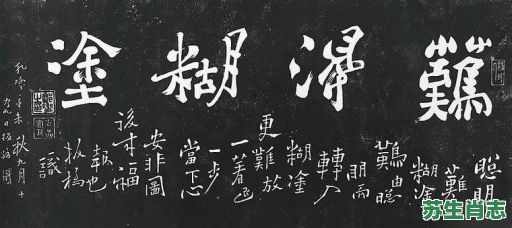 難得糊塗
聰明
難
糊塗
難由聰
明而
轉入
糊塗
更難放
一著退
一步
當下心
安非圖
後來福
報也
板橋
識
乾隆辛未秋九月十
九日板橋
苏生肖志